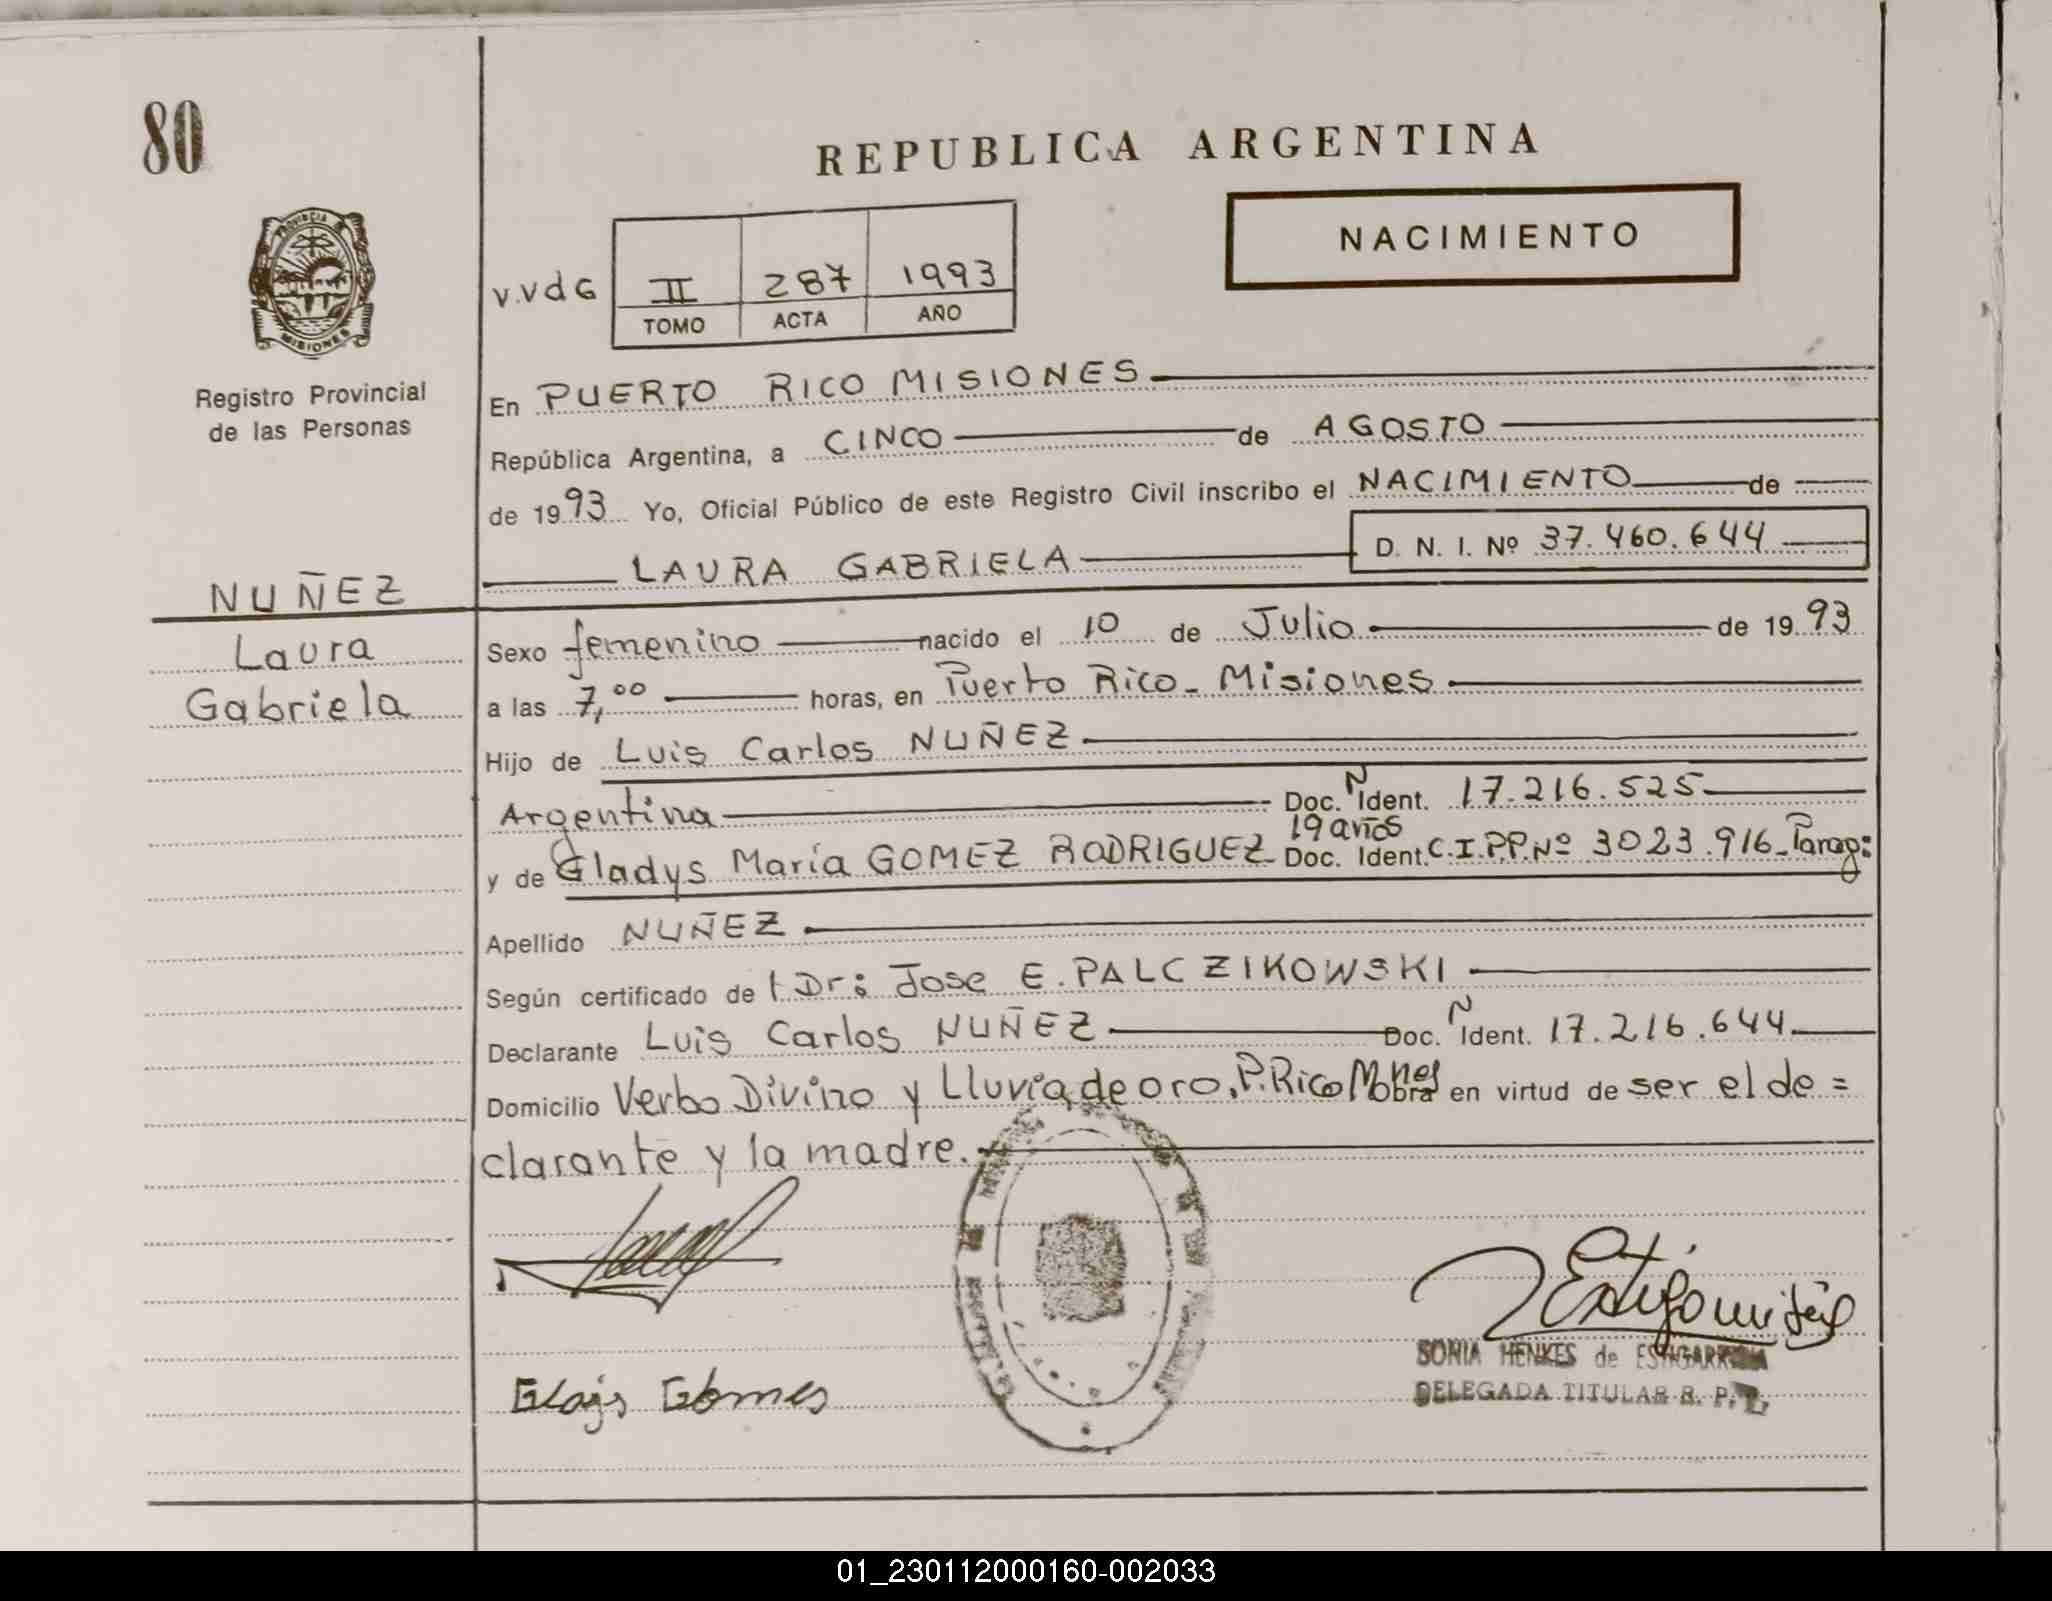 80
REPUBLICA ARGENTINA
PROVINCIA DE
MISIONES
NACIMIENTO
V.VdG II 287 1993
TOMO ACTA AÑO
Registro Provincial
de las Personas
En PUERTO RICO MISIONES
República Argentina, a CINCO de AGOSTO
de 1993 Yo, Oficial Público de este Registro Civil inscribo el NACIMIENTO de
LAURA GABRIELA D. N. I. Nº 37.460.644
NUÑEZ
Laura
Gabriela
Sexo femenino nacido el 10 de Julio de 1993
a las 7,00 horas, en Puerto Rico - Misiones
Hijo de Luis Carlos NUÑEZ
Argentina Doc. N Ident. 17.216.525
19 años
y de Gladys María GOMEZ RODRIGUEZ Doc. Ident. C.I.P.P.Nº 3023.916-Parag:
Apellido NUÑEZ
Según certificado de l Dr: Jose E. PALCZIKOWSKI
Declarante Luis Carlos NUÑEZ Doc. N Ident. 17.216.644
Domicilio Verbo Divino y Lluvia de oro, P.Rico Mnes Obra en virtud de ser el de =
clarante y la madre.
SONIA HENKES de ESTIGARRIBIA
DELEGADA TITULAR R. P.
01_230112000160-002033